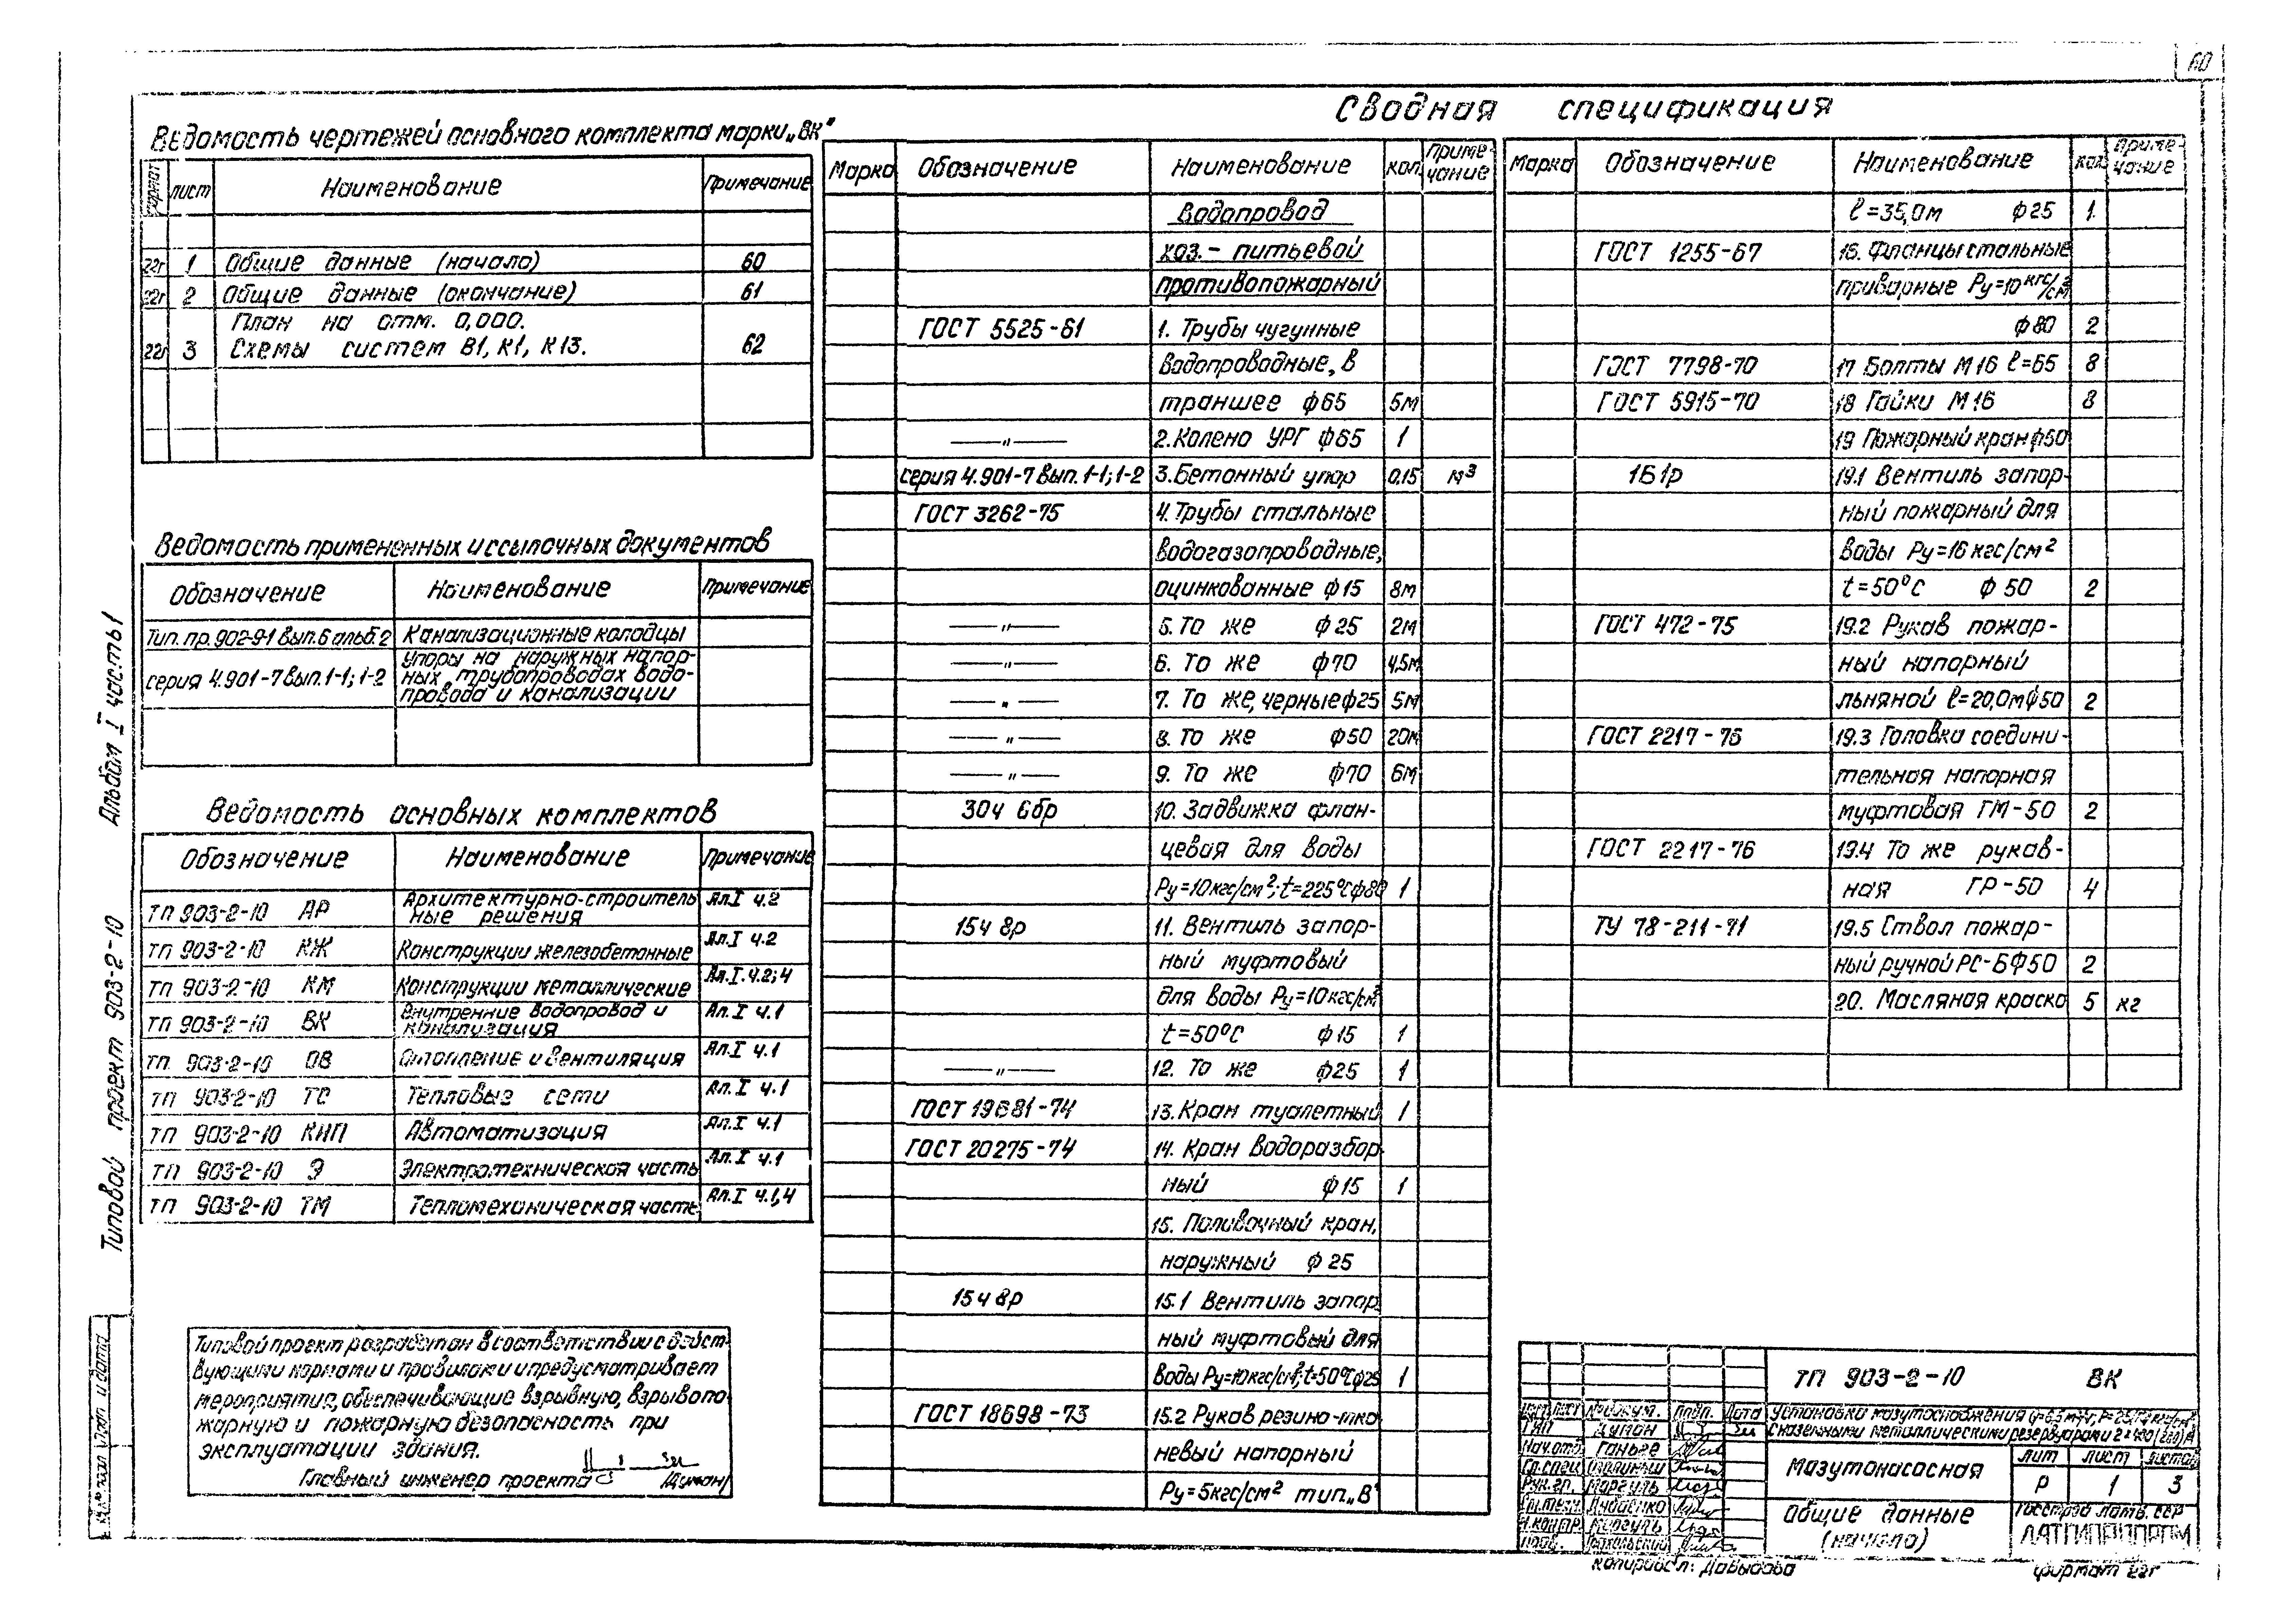 60
Ведомость чертежей основного комплекта марки „ВК"
формат лист Наименование Примечание
22г 1 Общие данные (начало) 60
22г 2 Общие данные (окончание) 61
План на отм. 0,000.
22г 3 Схемы систем В1, К1, К13. 62
Ведомость примененных и ссылочных документов
Обозначение Наименование Примечание
Тип. пр. 902-9-1 вып. 6 альб. 2 Канализационные колодцы
серия 4.901-7 вып. 1-1; 1-2 Упоры на наружных напор-
ных трубопроводах водо-
провода и канализации
Ведомость основных комплектов
Обозначение Наименование Примечание
ТП 903-2-10 АР Архитектурно-строитель
ные решения Ал.I ч.2
ТП 903-2-10 КЖ Конструкции железобетонные Ал.I ч.2
ТП 903-2-10 КМ Конструкции металлические Ал.I.ч.2;4
ТП 903-2-10 ВК Внутренние водопровод и
канализация Ал.I ч.1
ТП 903-2-10 ОВ Отопление и вентиляция Ал.I ч.1
ТП 903-2-10 ТС Тепловые сети Ал.I ч.1
ТП 903-2-10 КИП Автоматизация Ал.I ч.1
ТП 903-2-10 Э Электротехническая часть Ал.I ч.1
ТП 903-2-10 ТМ Тепломеханическая часть Ал.I ч.1,4
Типовой проект разработан в соответствии с дейст-
вующими нормами и правилами и предусматривает
мероприятия, обеспечивающие взрывную, взрывопо-
жарную и пожарную безопасность при
эксплуатации здания.
Главный инженер проекта
Типовой проект 903-2-10 Альбом I часть I
Сводная спецификация
Марка Обозначение Наименование кол. Приме-
чание
Водопровод
хоз.- питьевой
противопожарный
ГОСТ 5525-61 1. Трубы чугунные
водопроводные, в
траншее ф65 5м
—„— 2. Колено УРГ ф65 1
серия 4.901-7 вып. 1-1; 1-2 3. Бетонный упор 0,15 м³
ГОСТ 3262-75 4. Трубы стальные
водогазопроводные,
оцинкованные ф15 8м
—„— 5. То же ф25 2м
—„— 6. То же ф70 4,5м
—„— 7. То же, черные ф25 5м
—„— 8. То же ф50 20м
—„— 9. То же ф70 6м
30ч 6бр 10. Задвижка флан-
цевая для воды
Ру=10кгс/см²; t=225°С ф80 1
15ч 8р 11. Вентиль запор-
ный муфтовый
для воды Ру=10кгс/см²
t=50°С ф15 1
—„— 12. То же ф25 1
ГОСТ 19681-74 13. Кран туалетный 1
ГОСТ 20275-74 14. Кран водоразбор-
ный ф15 1
15. Поливочный кран,
наружный ф25
15ч 8р 15.1 Вентиль запор
ный муфтовый для
воды Ру=10кгс/см²; t=50°С ф25 1
ГОСТ 18698-73 15.2 Рукав резино-тка
невый напорный
Ру=5кгс/см² тип „В"
Марка Обозначение Наименование кол. Приме-
чание
ℓ=35,0м ф25 1
ГОСТ 1255-67 16. Фланцы стальные
приварные Ру=10кгс/см²
ф80 2
ГОСТ 7798-70 17 Болты М16 ℓ=65 8
ГОСТ 5915-70 18 Гайки М16 8
19 Пожарный кран ф50
1Б1р 19.1 Вентиль запор-
ный пожарный для
воды Ру=16кгс/см²
t=50°С ф50 2
ГОСТ 472-75 19.2 Рукав пожар-
ный напорный
льняной ℓ=20,0м ф50 2
ГОСТ 2217-76 19.3 Головка соедини-
тельная напорная
муфтовая ГМ-50 2
ГОСТ 2217-76 19.4 То же рукав-
ная ГР-50 4
ТУ 78-211-71 19.5 Ствол пожар-
ный ручной РС-Б ф50 2
20. Масляная краска 5 кг
ТП 903-2-10 ВК
Установка мазутоснабжения
с наземными металлическими резервуарами
Мазутонасосная
лит лист листов
Р 1 3
Общие данные
(начало)
Госстрой Латв. ССР
ЛАТГИПРОПРОМ
Нач.отд. Ганьге
Рук.гр. Маргуль
Н.контр. Маргуль
Копировал: Давыдова
формат 22г